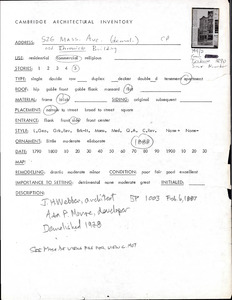 CAMBRIDGE ARCHITECTURAL INVENTORY
ADDRESS: 526 Mass. Ave. (demol.) CP
old Chronicle Building
USE: residential commercial religious
STORIES: 1 2 3 4 5
TYPE: single double row duplex decker double d tenement apartment
ROOF: hip gable front gable flank mansard flat
MATERIAL: frame brick SIDING: original subsequent
PLACEMENT: narrow to street broad to street square
ENTRANCE: flank front side front center
ORNAMENT: little moderate elaborate
DATE: 1790 1800 10 20 30 40 50 60 70 80 90 1900 10 20 30
MAP:
REMODELING: drastic moderate minor CONDITION: poor fair good excellent
IMPORTANCE TO SETTING: detrimental none moderate great INITIALED:
DESCRIPTION:
J H Webber, architect BP 1003 Feb 6, 1887
Asa P. Morse, developer
Demolished 1928
SEE MASS AVE VIEWS FILE FOR VIEW C. 1907